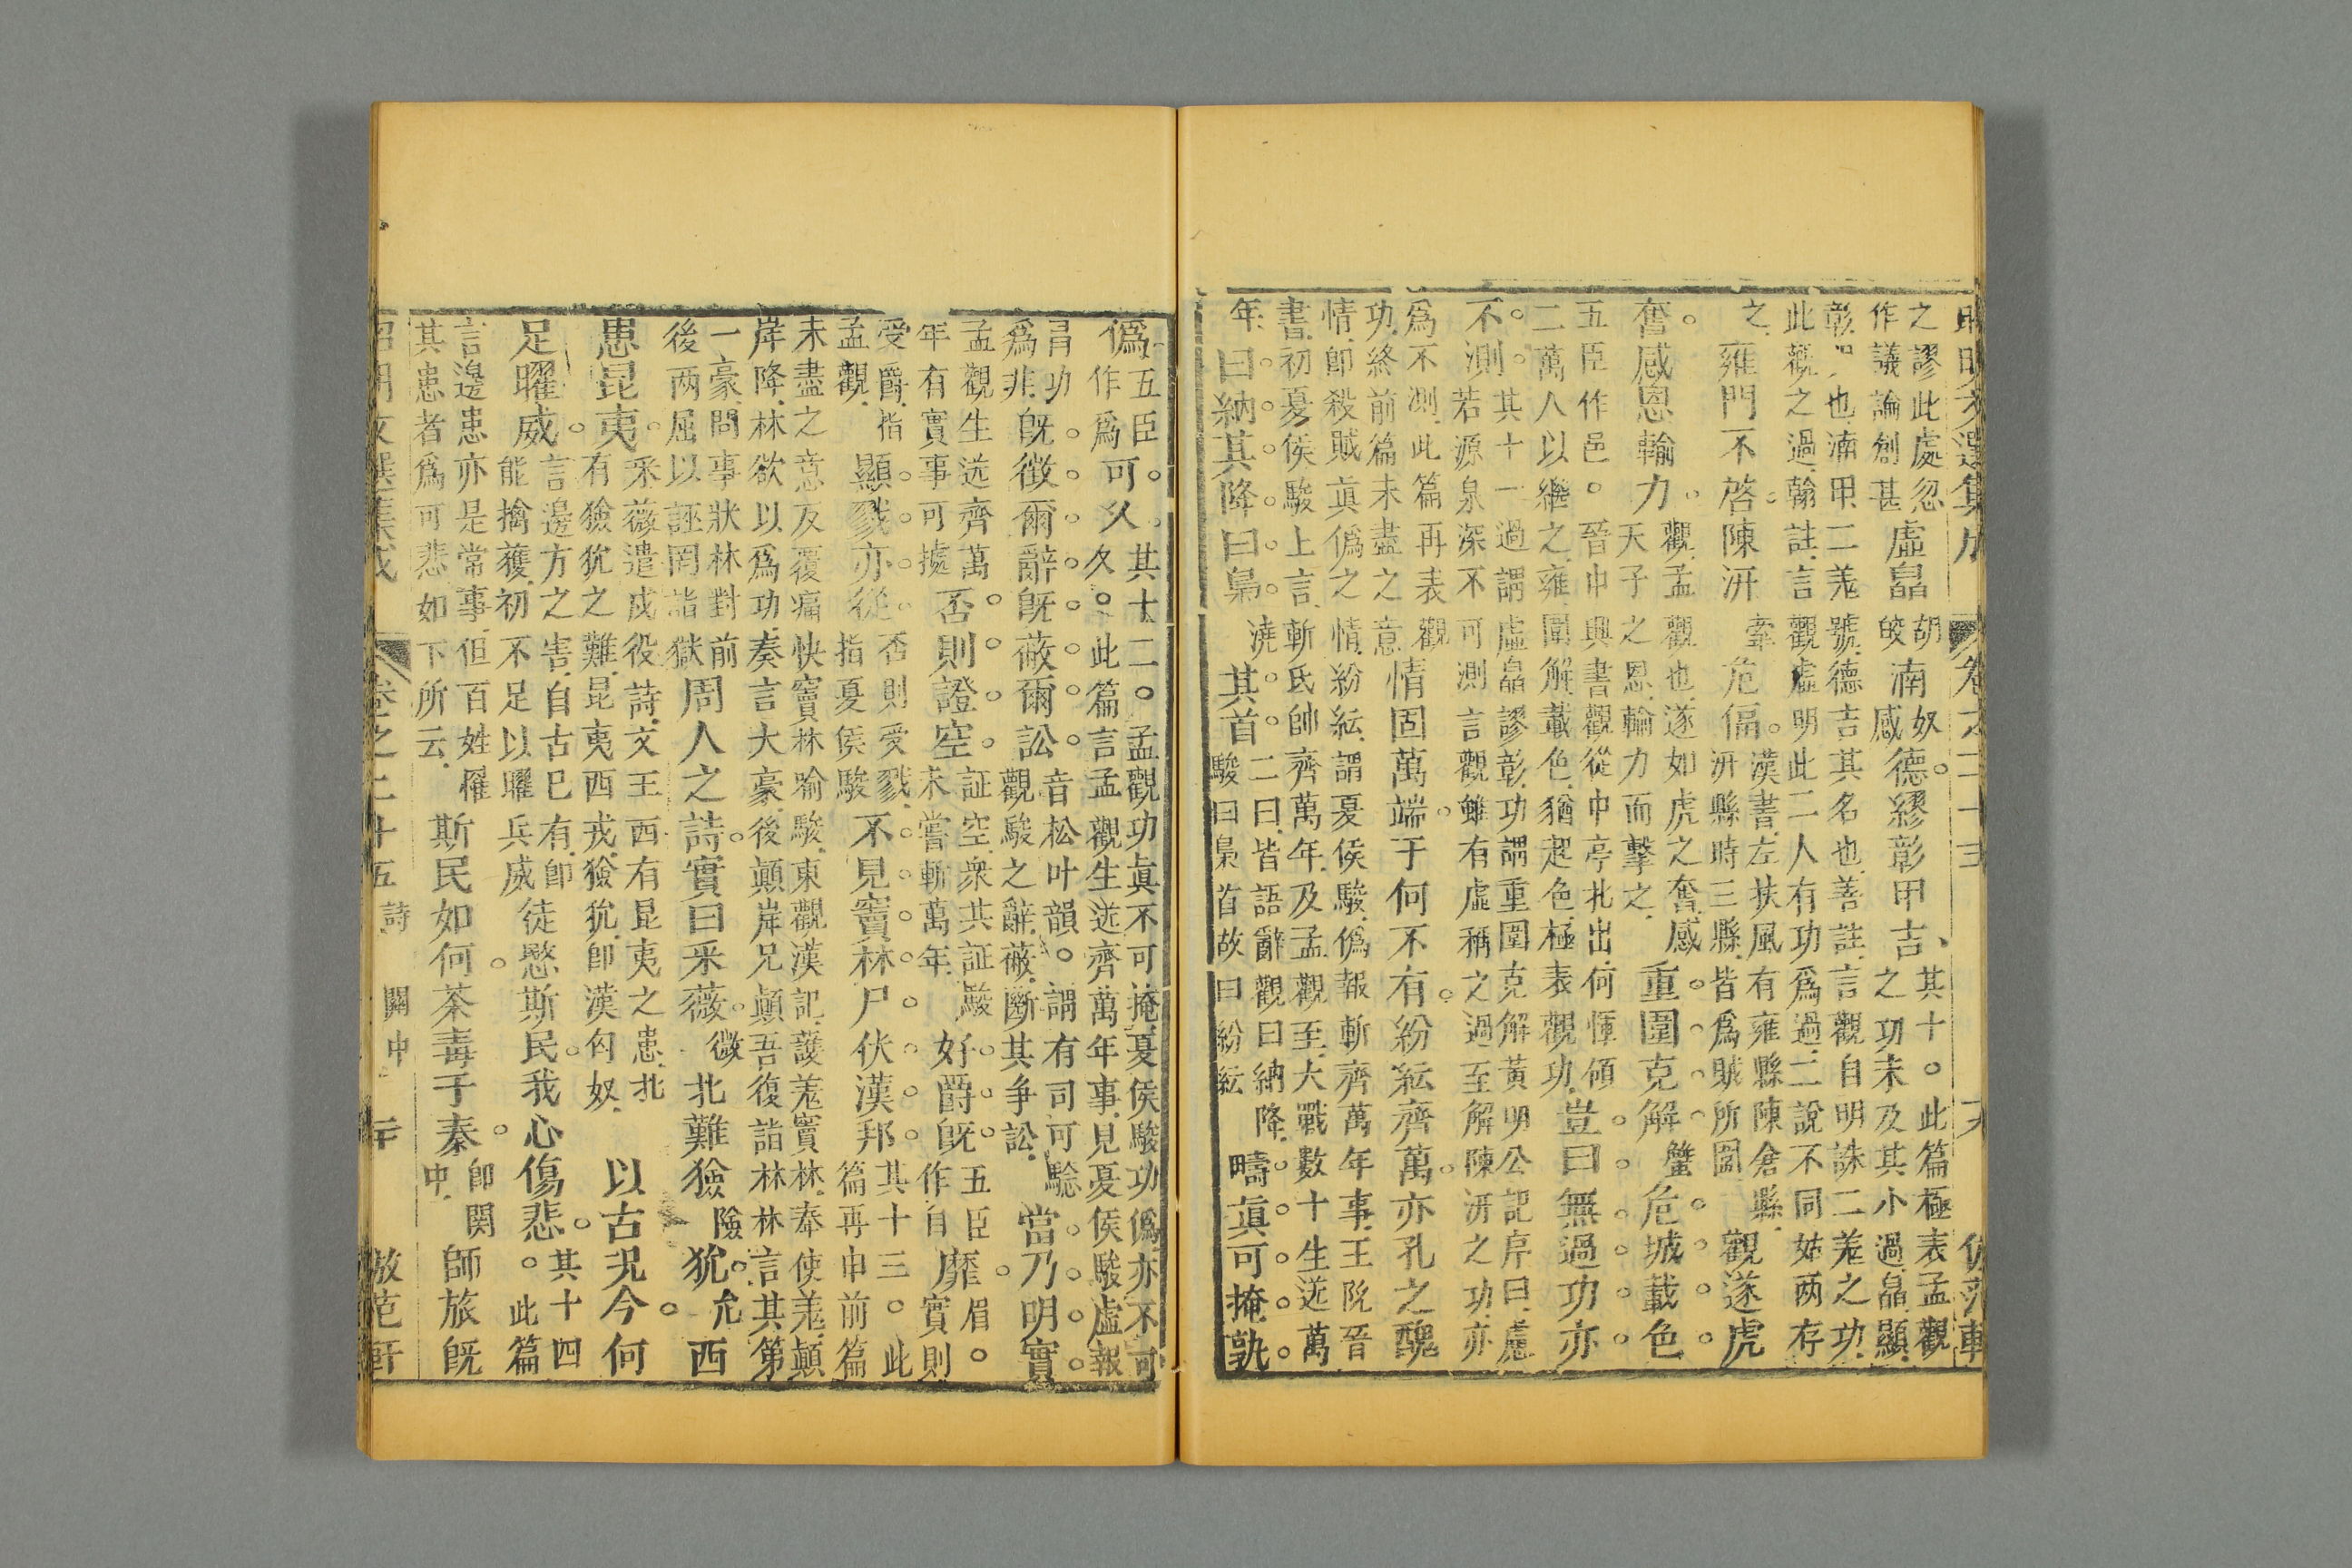 昭明文選集成 卷六二十三 倣范軒
之謬此處忽
作議論創甚
虛皛
胡皎
湳
奴感
德。繆彰甲吉、
其十。此篇極表孟觀
之功未及其小過皛顯
彰明也湳甲二羌號德吉其名也善註言觀自明誅二羌之功
此觀之過翰註言觀虛明此二人有功爲過二說不同姑两存
之
雍門不啓。陳汧
牽
危偪。
漢書左扶風有雍縣陳倉縣
汧縣時三縣皆爲賊所圍
觀遂虎
奮。感恩輸力。
觀孟觀也遂如虎之奮感
天子之恩輸力而擊之
重圍克解
蟹
危城載色
五臣作邑。晉中興書觀從中亭北出何惲傾
二萬人以繼之雍圍解載色猶起色極表觀功
豈曰無過功亦
不。測。
其十一過謂虛皛謬彰功謂重圍克解黃明公記序曰慮
若源泉深不可測言觀雖有虛稱之過至解陳汧之功亦
爲不測此篇再表觀
功終前篇未盡之意
情固萬端。于何不有。紛紜齊萬。亦孔之醜
情卽殺賊真僞之情紛紜謂夏侯駿僞報斬齊萬年事王阮晉
書初夏侯駿上言斬氐帥齊萬年及孟觀至大戰數十生送萬
年
曰納其降曰梟
澆
其首
二曰皆語辭觀曰納降
駿曰梟首故曰紛紜
疇真可掩孰
僞
五臣
作爲
可久
其十二。孟觀功真不可掩夏侯駿功僞亦不可
久。此篇言孟觀生送齊萬年事見夏侯駿虛報
冐功
爲非
旣徵爾辭旣蔽爾訟
音松叶韻。謂有司可騐
觀駿之辭蔽斷其争訟
當乃明實
孟觀生送齊萬
年有實事可據
否則證空。
証空衆共証駿
未嘗斬萬年
好爵旣
五臣
作自
靡
眉。
實則
受爵指
孟觀
顯戮亦從
否則受戮
指夏侯駿
不見竇林尸伏漢邦
其十三。此
篇再申前篇
未盡之意反覆痛快竇林喻駿東觀漢記護羌竇林奉使羌顛
岸降林欲以爲功奏言大豪後顛岸兄顛吾復詣林林言其第
一豪問事狀林對前
後两屈以誣罔詣獄
周人之詩。實曰采薇。
微
北難獫
險
狁。
允
西
患昆夷。
采薇遣戍役詩文王西有昆夷之患北
有獫狁之難昆夷西戎獫狁卽漢匈奴
以古况今。何
足曜威。
言邊方之害自古已有卽
能擒獲初不足以曜兵威
徒愍斯民。我心傷悲。
其十四
。此篇
言邊患亦是常事但百姓罹
其患者爲可悲如下所云
斯民如何。荼毒于秦。
卽関
中
師旅旣
昭明文選集成 卷之二十五 詩 關中 二十 倣范軒